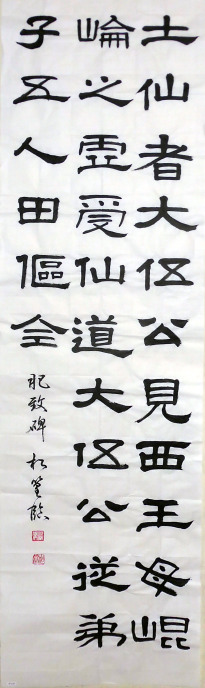 土仙者大伍公見西王母崐
崘之虚受仙道大伍公從弟
子五人田傴全
肥致碑 松筆臨